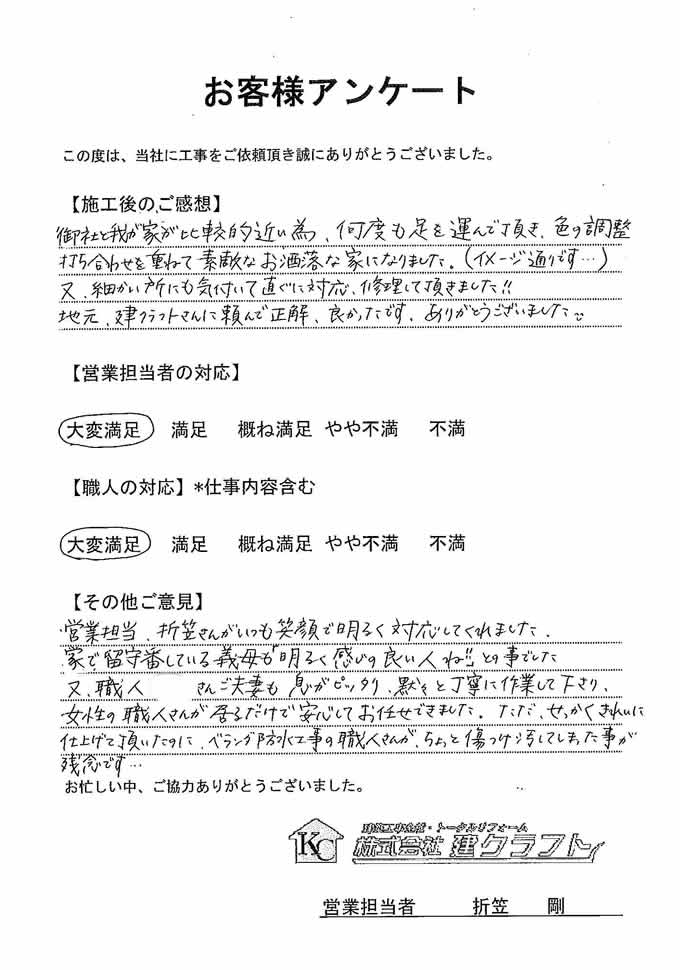 お客様アンケート
この度は、当社に工事をご依頼頂き誠にありがとうございました。
【施工後のご感想】
御社と我が家が比較的近い為、何度も足を運んで頂き、色の調整
打ち合わせを重ねて素敵なお洒落な家になりました。(イメージ通りです…)
又、細かい所にも気付いて直ぐに対応、修理して頂きました!!
地元、建クラフトさんに頼んで正解、良かったです、ありがとうございました
【営業担当者の対応】
大変満足 満足 概ね満足 やや不満 不満
【職人の対応】*仕事内容含む
大変満足 満足 概ね満足 やや不満 不満
【その他ご意見】
営業担当、折笠さんがいつも笑顔で明るく対応してくれました、
家で留守番している義母も"明るく感じの良い人ね!!"との事でした
又、職人 さんご夫妻も息がピッタリ、黙々と丁寧に作業して下さり、
女性の職人さんが居るだけで安心してお任せできました。ただ、せっかくきれいに
仕上げて頂いたのに、ベランダ防水工事の職人さんが、ちょっと傷つけ汚してしまった事が
残念です…
お忙しい中、ご協力ありがとうございました。
KC
・トータルリフォーム
株式会社 建クラフト
営業担当者 折笠 剛